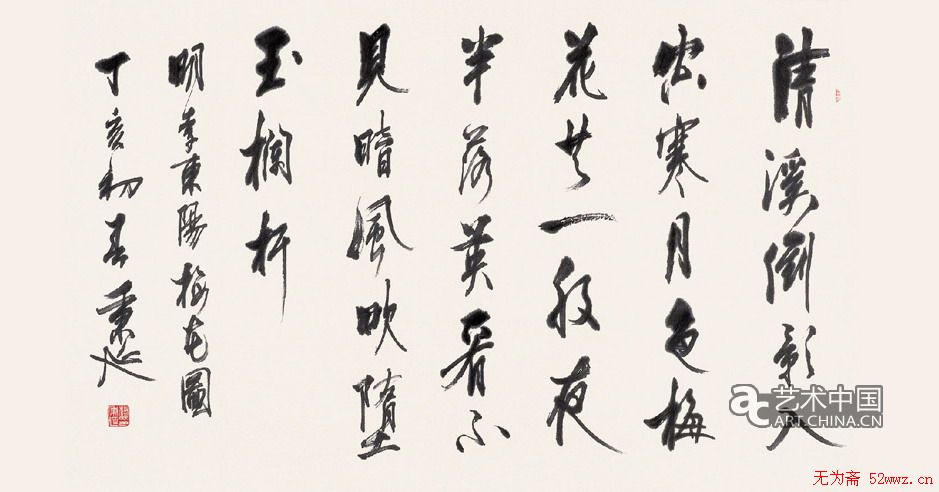 清溪倒影入
窗寒月色梅
花共一般夜
半落英看不
見暗風吹墮
玉欄杆
明李東陽梅花圖
丁亥初春秉
艺术中国
ART.CHINA.CN
无为斋 52wwz.cn